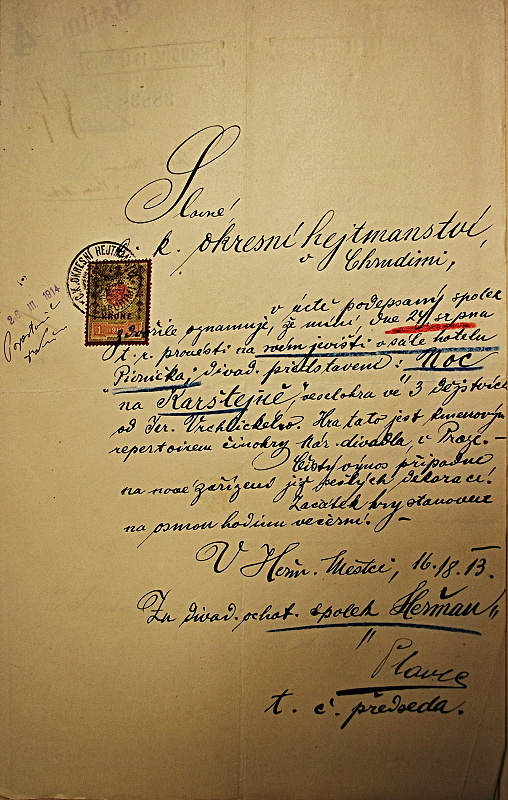 Slavné
c. k. okresní hejtmanství
v Chrudimi,
C.K. OKRESNÍ HEJTMAN
KRONE
1
28 III. 1914
v úctě podepsaný spolek
zdvořile oznamuje, že míní, dne 24 srpna
t. r. provésti na svém jevišti v sále hotelu
"Pivnička", divad. představení: "Noc
na Karlštejně", veselohra ve 3 dějstvích
od Jar. Vrchlického. Hra tato jest kmenovým
repertoirem činohry Nár. divadla, v Praze. —
Čistý výnos připadne
na nové zařízení již sešlých dekorací.
Začátek hry stanoven
na osmou hodinu večerní. —
V Heřm. Městci, 16./8. 13.
Za divad. ochot. spolek "Heřman"
t. č. předseda.